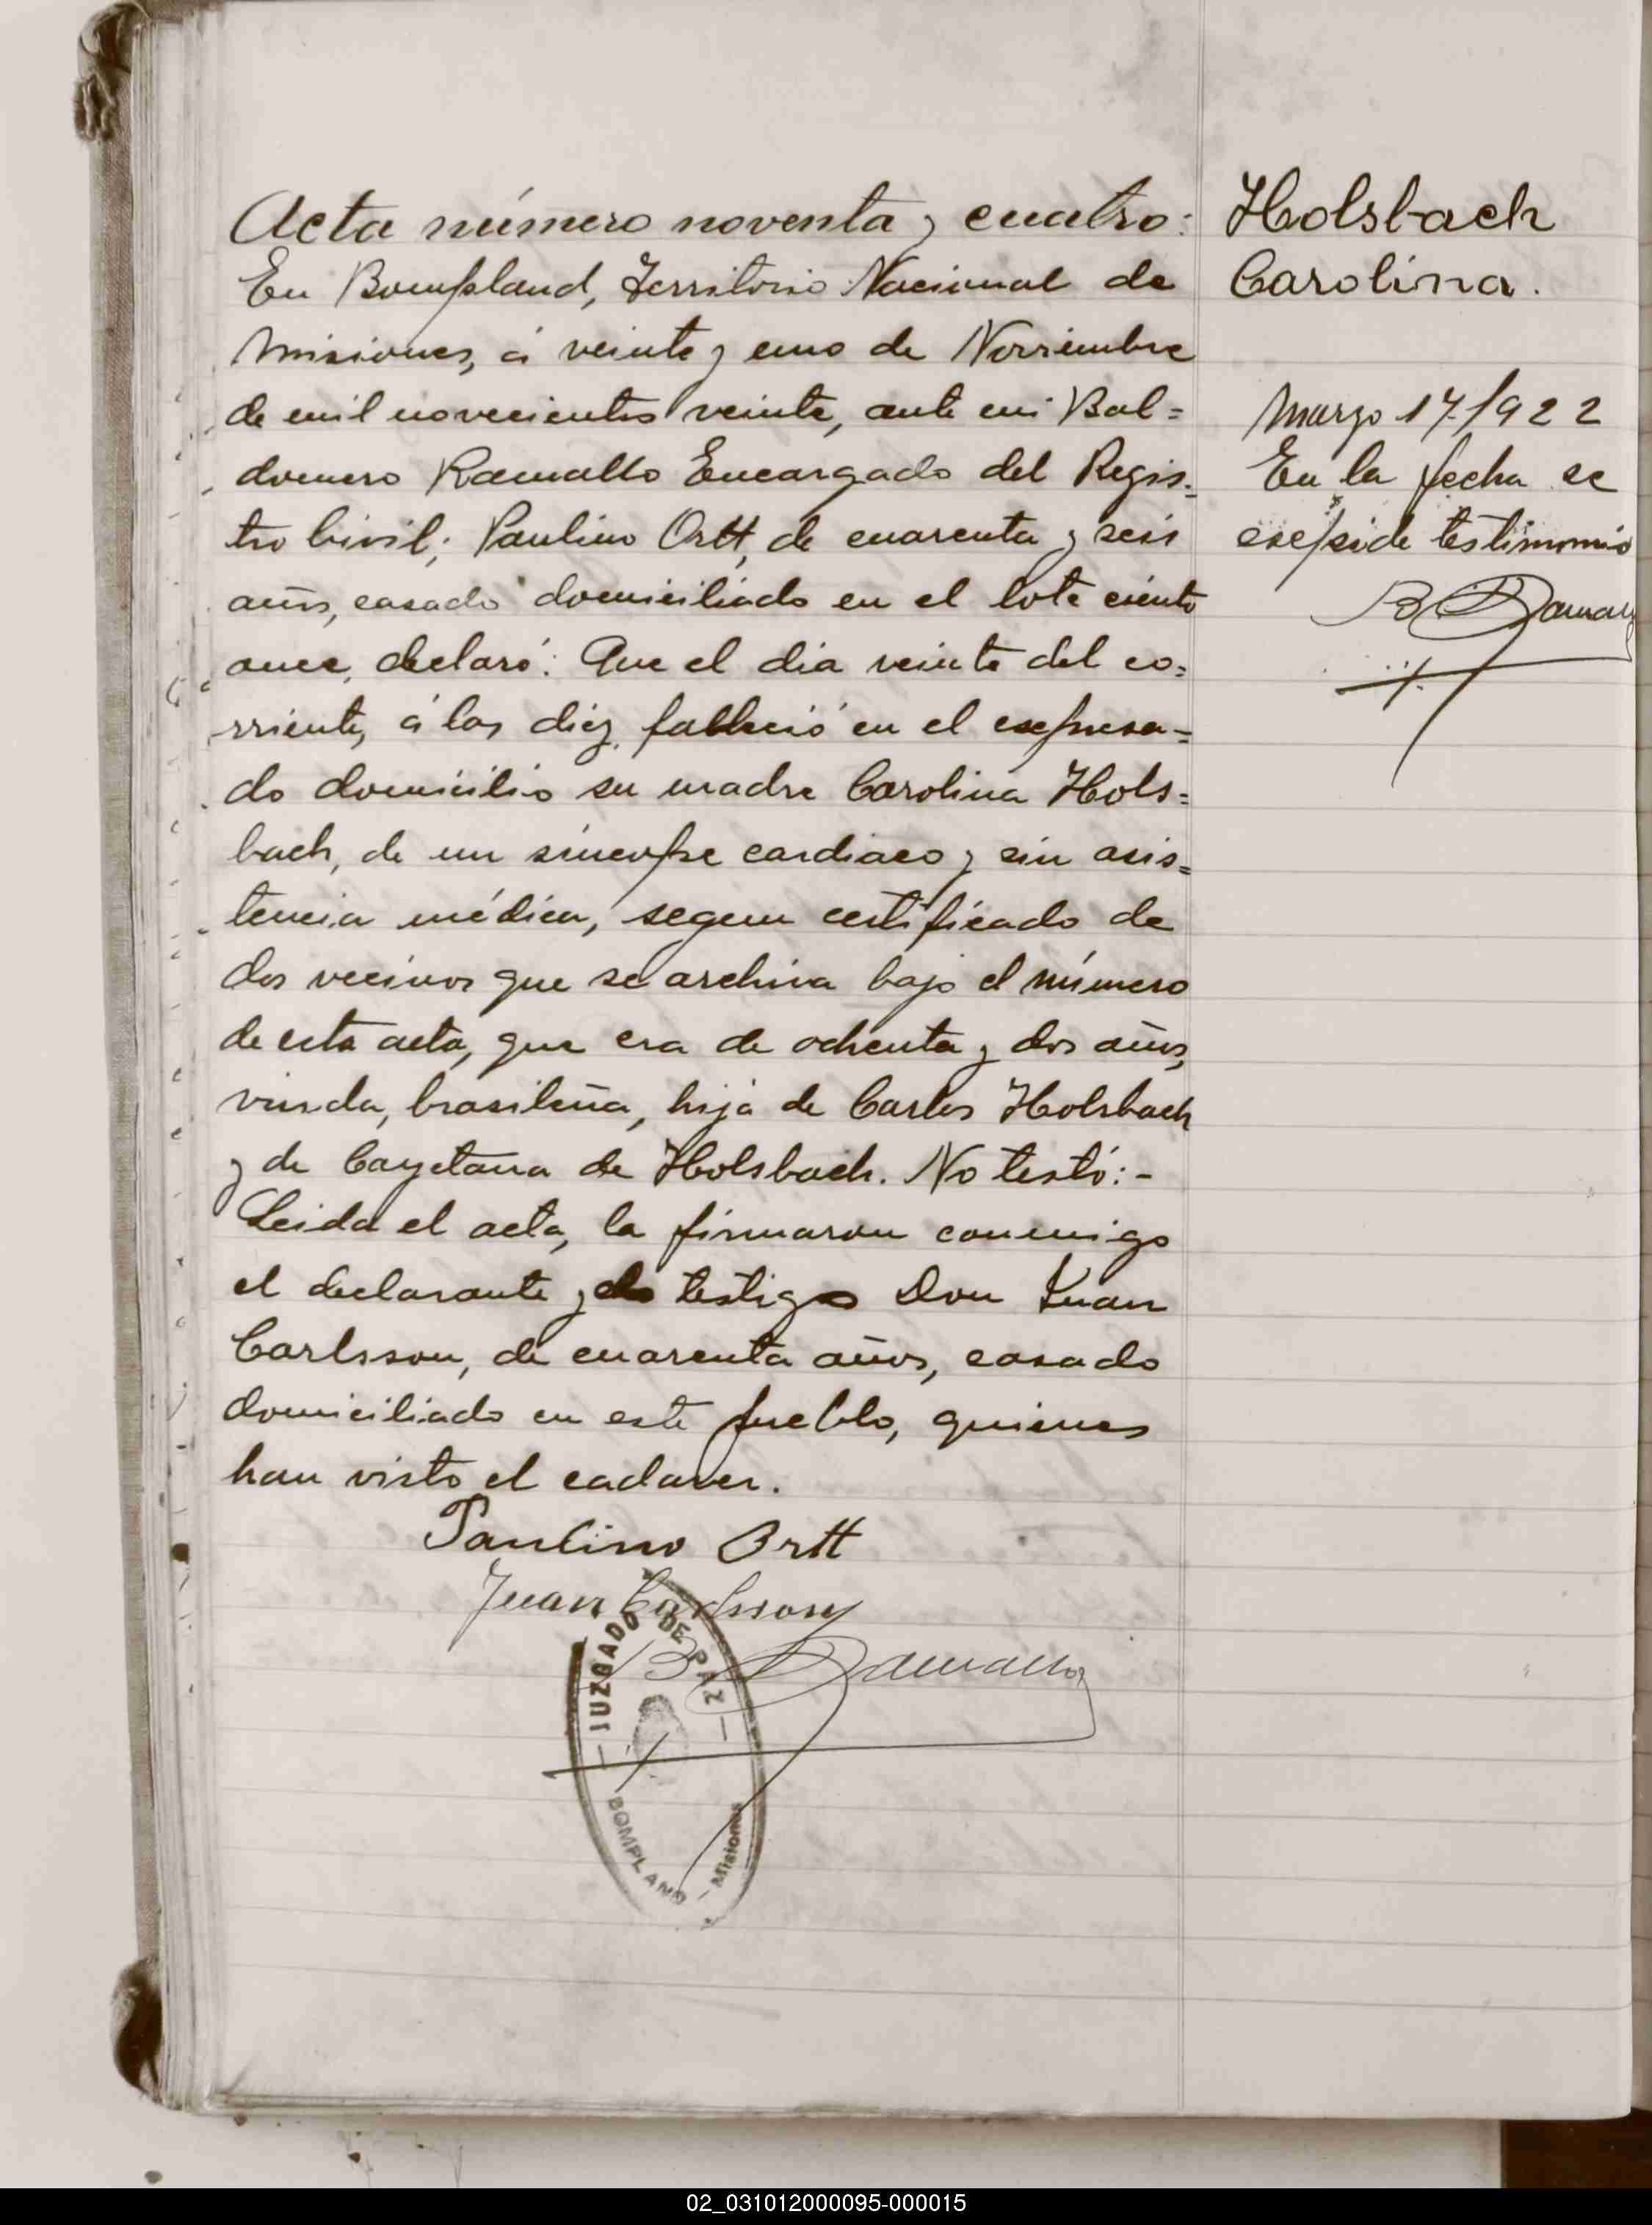 Acta número noventa y cuatro:
En Bompland, Territorio Nacional de
Misiones, á veinte y uno de Noviembre
de mil novecientos veinte, ante mi Bal=
domero Ramallo Encargado del Regis=
tro Civil; Paulino Ortt, de cuarenta y seis
años, casado domiciliado en el lote ciento
once, declaró: Que el dia veinte del co=
rriente, á las diez, falleció en el expresa=
do domicilio su madre Carolina Hols=
bach, de un síncope cardiaco y sin asis=
tencia médica, segun certificado de
dos vecinos que se archiva bajo el número
de esta acta, que era de ochenta y dos años,
viuda, brasileña, hija de Carlos Holsbach
y de Cayetana de Holsbach. No testó:-
Leida el acta, la firmaron conmigo
el declarante y el testigo Don Juan
Carlsson, de cuarenta años, casado
domiciliado en este pueblo, quienes
han visto el cadaver.
Paulino Ortt
Juan Carlsson
B Ramallo
JUZGADO DE PAZ
BOMPLAND - Misiones
Holsbach
Carolina.
Marzo 17/922
En la fecha se
expide testimonio
B Ramallo
02_031012000095-000015